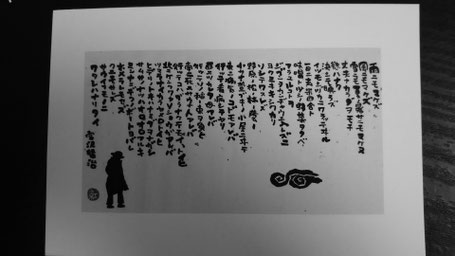 雨ニモマケズ
風ニモマケズ
雪ニモ夏ノ暑サニモマケヌ
丈夫ナカラダヲモチ
慾ハナク
決シテ瞋ラズ
イツモシヅカニワラッテヰル
一日ニ玄米四合ト
味噌ト少シノ野菜ヲタベ
アラユルコトヲ
ジブンヲカンジョウニ入レズニ
ヨクミキキシワカリ
ソシテワスレズ
野原ノ松ノ林ノ蔭ノ
小サナ萱ブキノ小屋ニヰテ
東ニ病気ノコドモアレバ
行ッテ看病シテヤリ
西ニツカレタ母アレバ
行ッテソノ稲ノ束ヲ負ヒ
南ニ死ニサウナ人アレバ
行ッテコハガラナクテモイヽトイヒ
北ニケンクヮヤソショウガアレバ
ツマラナイカラヤメロトイヒ
ヒデリノトキハナミダヲナガシ
サムサノナツハオロオロアルキ
ミンナニデクノボートヨバレ
ホメラレモセズ
クニモサレズ
サウイフモノニ
ワタシハナリタイ
宮沢賢治